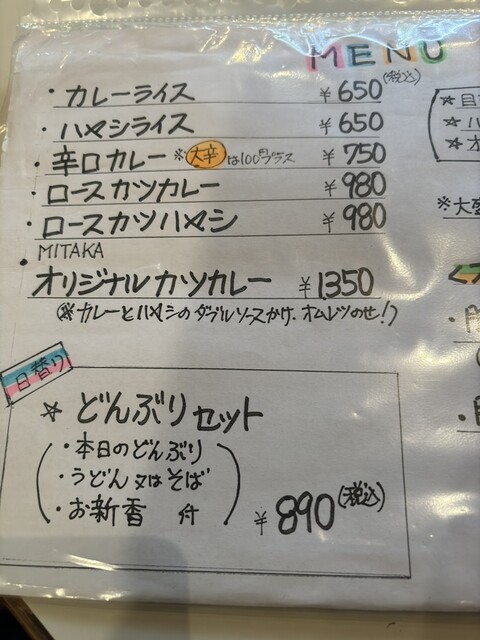 MENU
・カレーライス ¥650(税込)
・ハヤシライス ¥650
・辛口カレー ※大辛は100円プラス ¥750
・ロースカツカレー ¥980
・ロースカツハヤシ ¥980
・MITAKA
オリジナルカツカレー ¥1350
(※カレーとハヤシのダブルソースかけ、オムレツのせ!)
日替り
☆どんぶりセット
・本日のどんぶり
・うどん又はそば
・お新香 付
¥890(税込)
★日
★ハ
★オ
※大盛